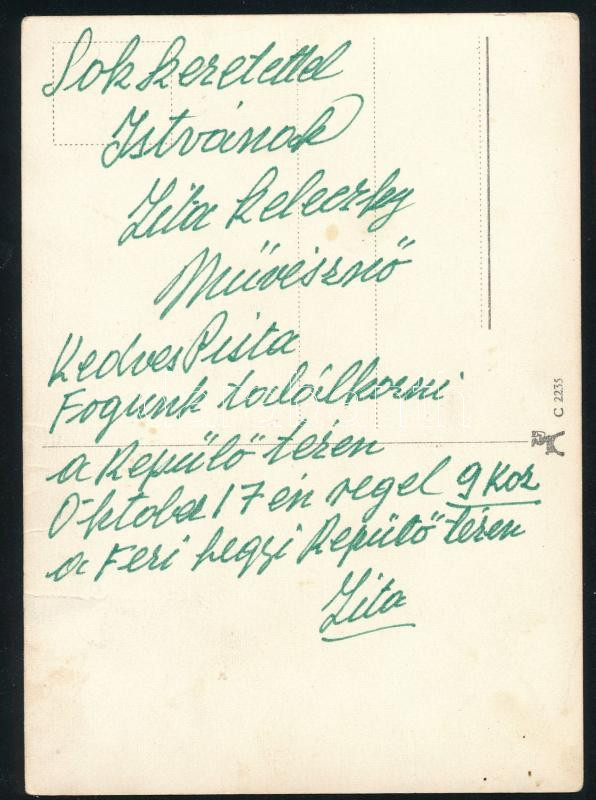 Sok szeretettel
Istvánok
Zita Szeleczky
Művésznő
Kedves Pista
Fogunk találkozni
a Repülő téren
Oktobe 17 én regel 9 Kor
a Feri hegyi Repülő téren
Zita
C 2235